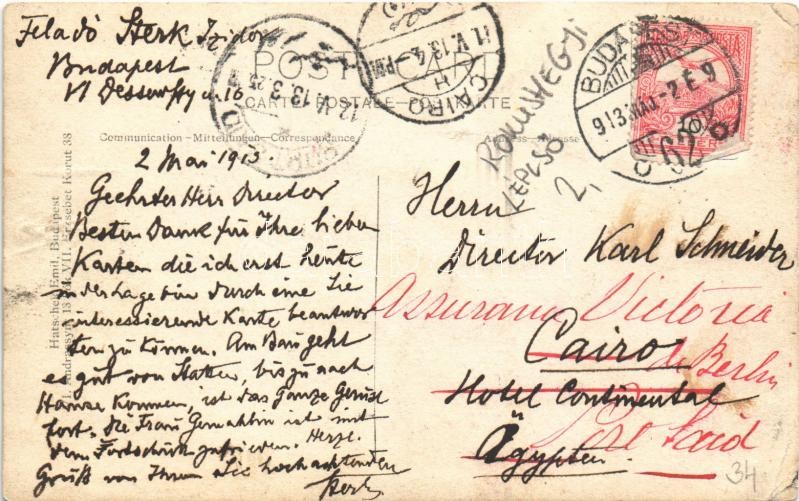 Feladó Sterk Izidor
Budapest
VI Dessewffy u 16
POST CART
CARTE POSTALE
CAIRO
11.V.13.4- PM
H
12.V.13.3.25
BUDAPEST
913.MAJ.-2.E 9
62
ROKUSHEGYI
LÉPCSŐ
2,
Communication – Mitteilungen – Correspondence
Address – Adresse
2 Mai 1913.
Geehrter Herr Director
Besten Dank für Ihre lieben
Karten die ich erst heute
in der Lage bin durch eine Sie
interessierende Karte beantwor
ten zu können. Am Bau geht
es gut von Statten, bis Sie nach
Hause kommen, ist das ganze Gerüst
fort. Die Frau Gemahlin ist mit
dem Fortschritt zufrieden. Herzl.
Gruß von Ihrem Sie hochachtenden
Sterk
Herrn
Director Karl Schneider
Assurance Victoria
Cairo
de Berlin
Hotel Continental
Port Said
Ägypten
34